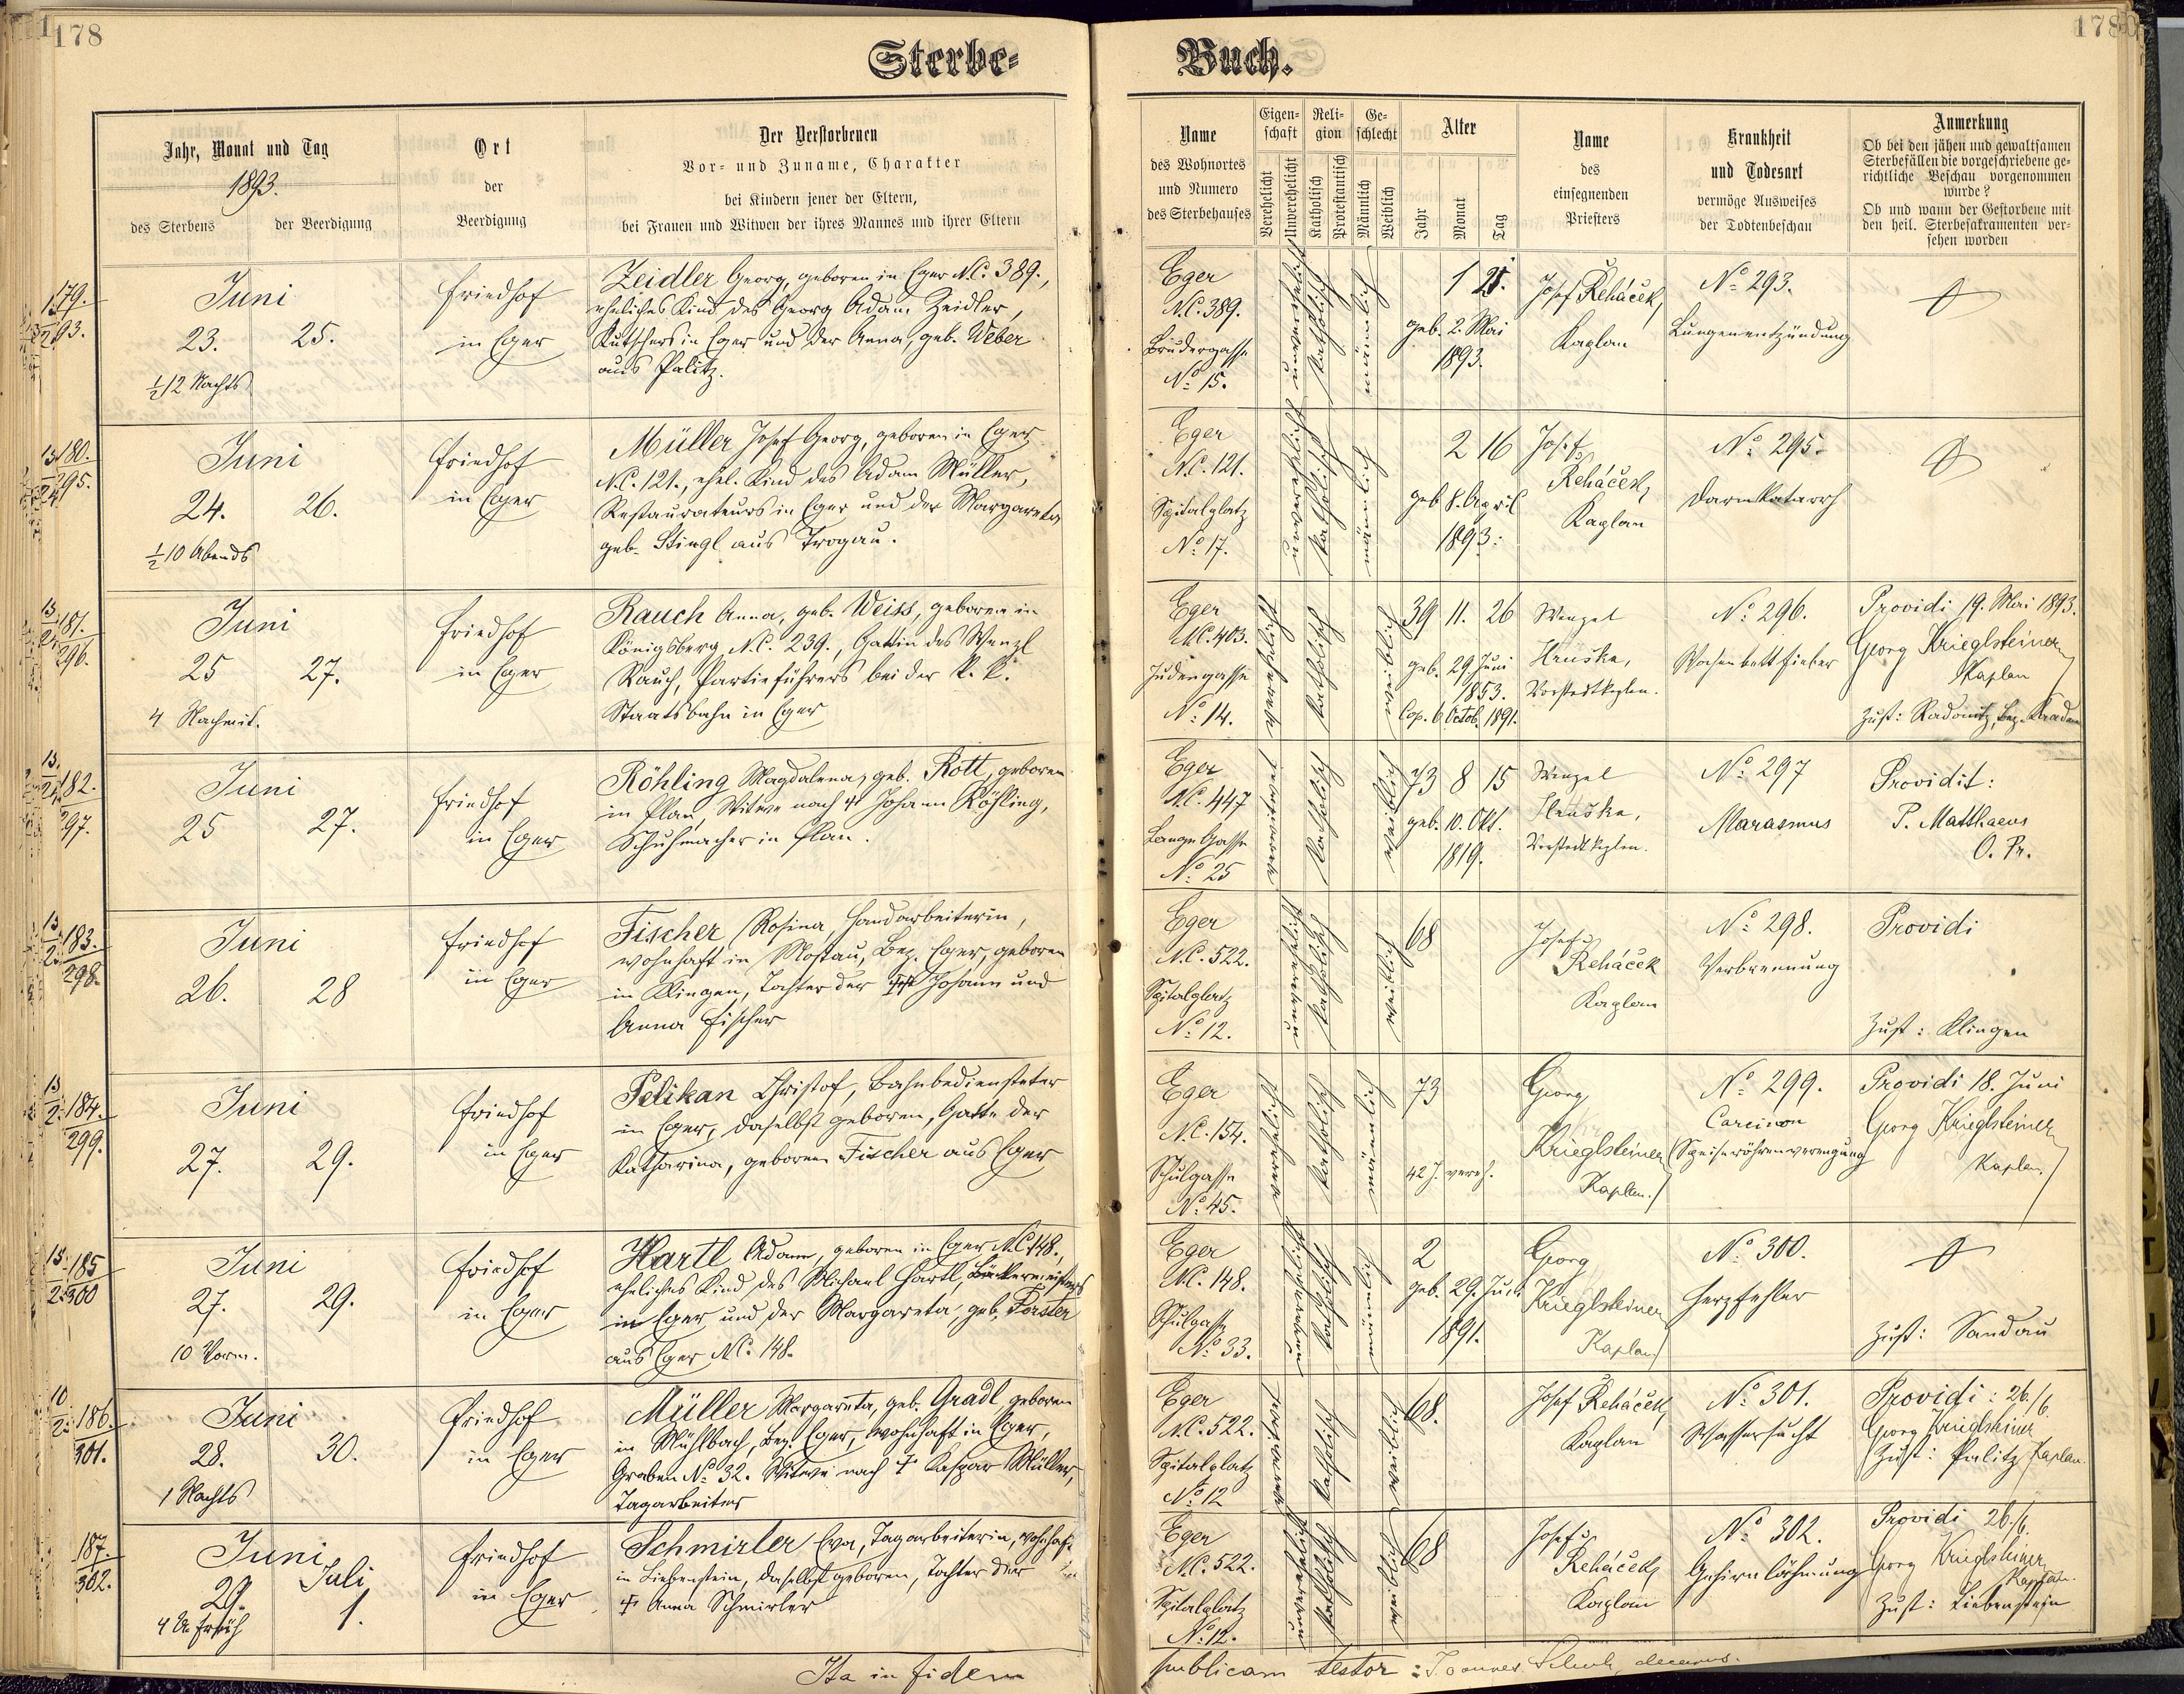 178
178
Sterbe-
Buch.
Jahr, Monat und Tag
1893.
des Sterbens
der Beerdigung
Ort
der
Beerdigung
Der Verstorbenen
Vor- und Zuname, Charakter
bei Kindern jener der Eltern,
bei Frauen und Witwen der ihres Mannes und ihrer Eltern
Name
des Wohnortes
und Numero
des Sterbehauses
Eigen-
schaft
Verehelicht
Unverehelicht
Reli-
gion
Katholisch
Protestantisch
Ge-
schlecht
Männlich
Weiblich
Alter
Jahr
Monat
Tag
Name
des
einsegnenden
Priesters
Krankheit
und Todesart
vermöge Ausweises
der Todtenbeschau
Anmerkung
Ob bei den jähen und gewaltsamen
Sterbefällen die vorgeschriebene ge-
richtliche Beschau vorgenommen
wurde?
Ob und wann der Gestorbene mit
den heil. Sterbesakramenten ver-
sehen worden
179.
293.
Juni
23.
25.
½12 Nachts
Friedhof
in Eger
Zeidler Georg, geboren in Eger N.C. 389.,
eheliches Kind des Georg Adam Zeidler,
Kutschers in Eger und der Anna, geb. Weber
aus Palitz.
Eger
N.C. 389.
Brudergasse
No 15.
unverehelicht
katholisch
männlich
1 21.
geb. 2. Mai
1893.
Josef Řeháček,
Kaplan
No 293.
Lungenentzündung
180.
295.
Juni
24.
26.
½10 Abends
Friedhof
in Eger
Müller Josef Georg, geboren in Eger
N.C. 121., ehel. Kind des Adam Müller,
Restaurateurs in Eger und der Margareta
geb. Stingl aus Trogau.
Eger
N.C. 121.
Spitalplatz
No 17.
unverehelicht
katholisch
männlich
2 16
geb. 8. April
1893.
Josef
Řeháček,
Kaplan
No 295.
Darmkatarrh
181.
296.
Juni
25
27.
4 Nachmit.
Friedhof
in Eger
Rauch Anna, geb. Weiss, geboren in
Königsberg N.C. 239., Gattin des Wenzl
Rauch, Partieführers bei der k. k.
Staatsbahn in Eger
Eger
N.C. 403.
Judengasse
No 14.
verehelicht
katholisch
weiblich
39 11. 26
geb. 29 Juni
1853.
Cop. 6 Octob. 1891.
Wenzel
Hruška,
Vorstadtkaplan.
No 296.
Wochenbettfieber
Providi 19. Mai 1893.
Georg Krieglsteiner
Kaplan
Zust: Radonitz, Bez. Kaaden
182.
297.
Juni
25
27.
Friedhof
in Eger
Röhling Magdalena, geb. Rott, geboren
in Plan, Witwe nach † Johann Röhling,
Schuhmacher in Plan.
Eger
N.C. 447
Lange Gasse
No 25
verwitwet
katholisch
weiblich
73 8 15
geb. 10. Okt.
1819.
Wenzel
Hruška,
Vorstadtkaplan.
No 297
Marasmus
Providit:
P. Matthaeus
O. Pr.
183.
298.
Juni
26.
28
Friedhof
in Eger
Fischer Rosina, Handarbeiterin,
wohnhaft in Mostau, Bez. Eger, geboren
in Klingen, Tochter der †† Johann und
Anna Fischer
Eger
N.C. 522.
Spitalplatz
No 12.
unverehelicht
katholisch
weiblich
68
Josef
Řeháček
Kaplan
No 298.
Verbrennung
Providi
Zust: Klingen
184.
299.
Juni
27.
29.
Friedhof
in Eger
Pelikan Christof, Bahnbediensteter
in Eger, daselbst geboren, Gatte der
Katharina, geboren Fischer aus Eger
Eger
N.C. 154.
Schulgasse
No 45.
verehelicht
katholisch
männlich
73
42 J. vereh.
Georg
Krieglsteiner
Kaplan.
No 299.
Carcinom
(Speiseröhrenverengung
Providi 18. Juni
Georg Krieglsteiner
Kaplan.
185
300
Juni
27.
29.
10 Vorm.
Friedhof
in Eger
Hartl Adam, geboren in Eger N.C. 148.,
eheliches Kind des Michael Hartl, Bäckermeisters
in Eger und der Margareta, geb. Forster
aus Eger N.C. 148.
Eger
N.C. 148.
Schulgasse
No 33.
unverehelicht
katholisch
männlich
2
geb. 29. Juni
1891.
Georg
Krieglsteiner
Kaplan
No 300.
Herzfehler
Zust: Sandau
186.
301.
Juni
28.
30.
1 Nachts
Friedhof
in Eger
Müller Margareta, geb. Gradl, geboren
in Mühlbach, Bez. Eger, wohnhaft in Eger,
Graben No 32. Witwe nach † Kaspar Müller,
Tagarbeiter
Eger
N.C. 522.
Spitalplatz
No 12
verwitwet
katholisch
weiblich
68.
Josef Řeháček,
Kaplan
No 301.
Wassersucht
Providi: 26./6.
Georg Krieglsteiner
Zust: Palitz Kaplan.
187.
302.
Juni
29.
Juli
1.
4 U. Früh
Friedhof
in Eger
Schmirler Eva, Tagarbeiterin, wohnhaft
in Liebenstein, daselbst geboren, Tochter der
† Anna Schmirler
Eger
N.C. 522.
Spitalplatz
No 12.
unverehelicht
katholisch
weiblich
68
Josef
Řeháček,
Kaplan
No 302.
Gehirnlähmung
Providi 26./6.
Georg Krieglsteiner
Kaplan.
Zust: Liebenstein
Ita in fidem
publicam testor: